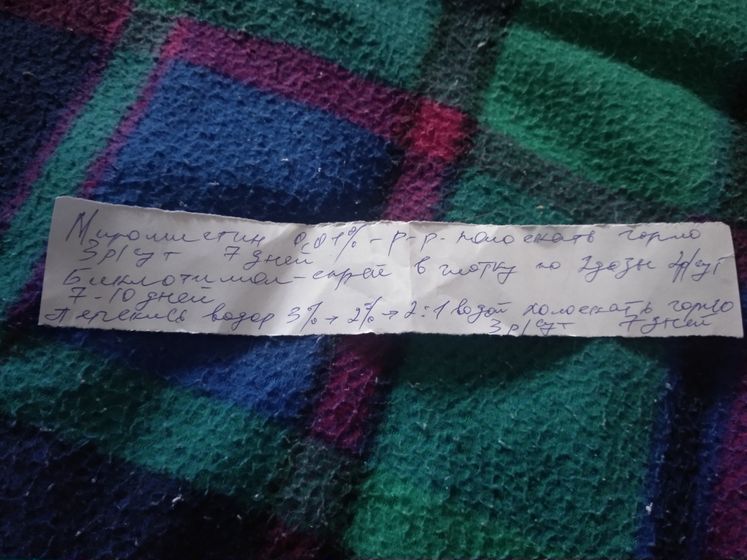 Мирамистин 0,01% - р-р - полоскать горло
3 р/сут 7 дней
Биклотимол - спрей в глотку по 2 дозы 2р/сут
7-10 дней
Перекись водор 3% → 2% → 2:1 водой полоскать горло
3 р/сут 7 дней